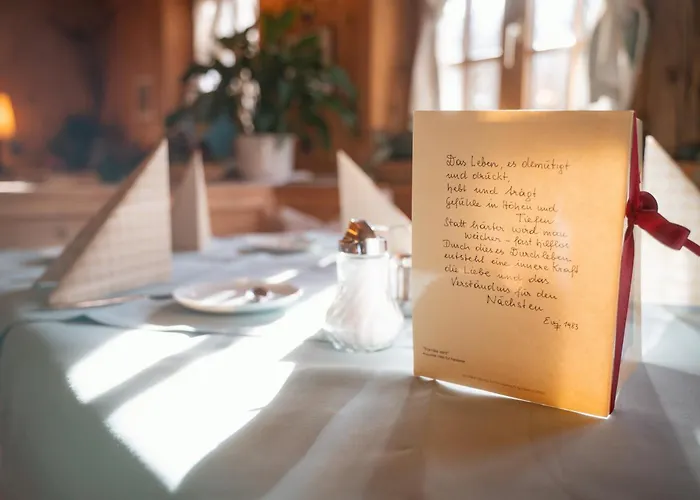 Das Leben, es demütigt
und drückt,
hebt und trägt
Gefühle in Höhen und
Tiefen
Statt härter wird man
weicher - fast hilflos
Durch dieses Durchleben
entsteht eine innere Kraft
die Liebe und das
Verständnis für den
Nächsten
1983